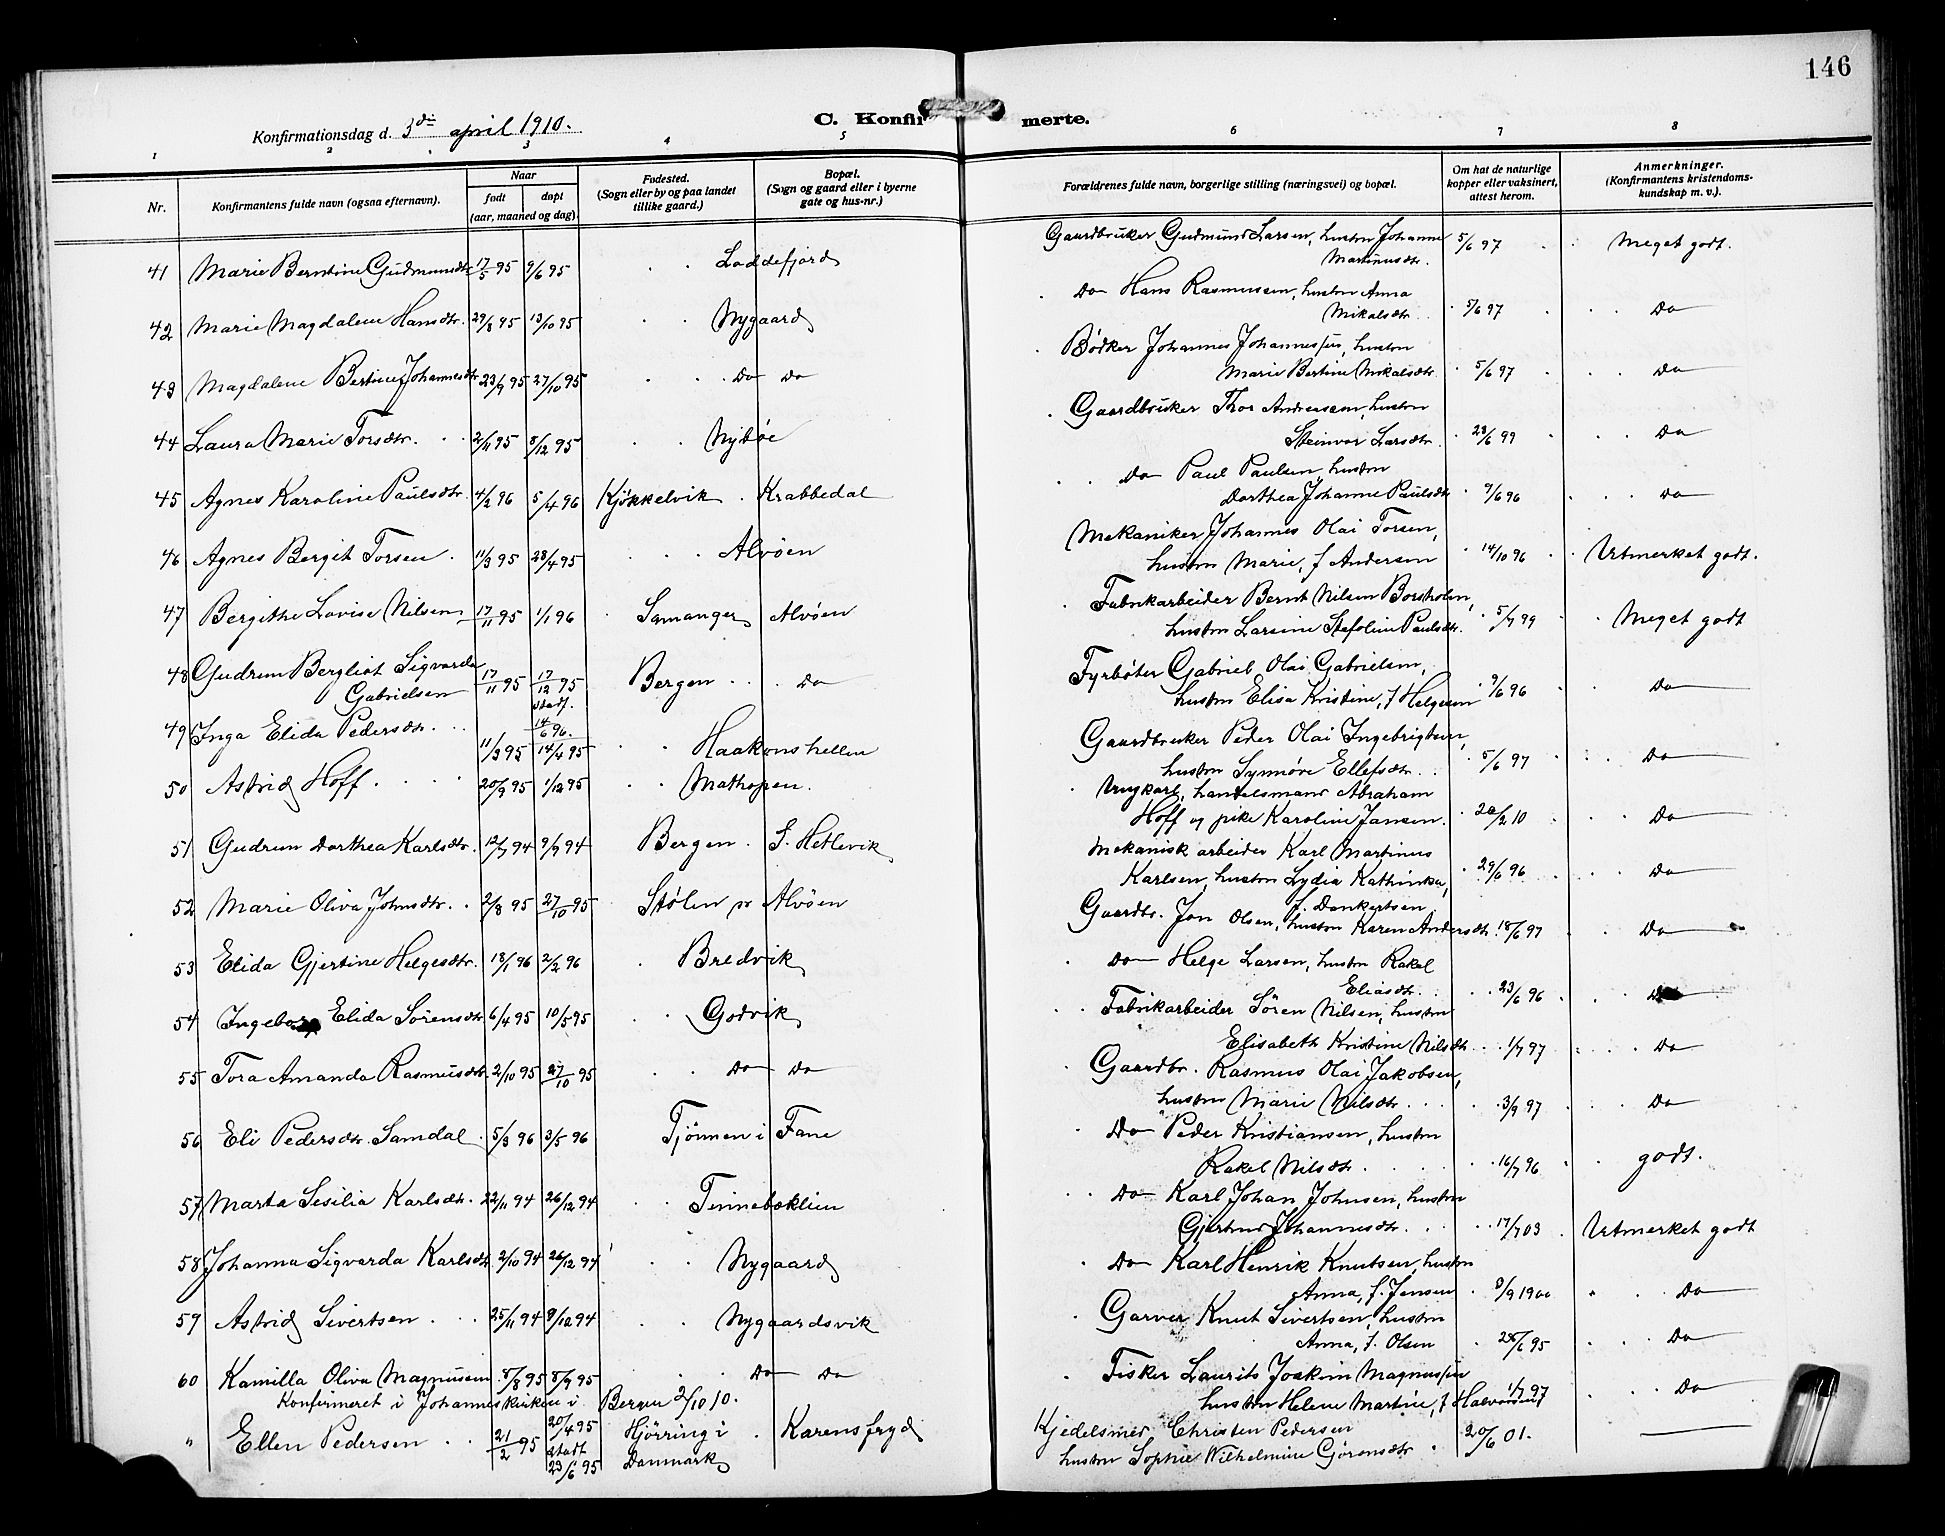 146
C. Konfirmerte.
Konfirmationsdag d. 3die april 1910.
1 2 3 4 5 6 7 8
Nr.
Konfirmantens fulde navn (ogsaa efternavn).
Naar
født
døpt
(aar, maaned og dag).
Fødested.
(Sogn eller by og paa landet
tillike gaard.)
Bopæl.
(Sogn og gaard eller i byerne
gate og hus-nr.)
Forældrenes fulde navn, borgerlige stilling (næringsvei) og bopæl.
Om hat de naturlige
kopper eller vaksinert,
attest herom.
Anmerkninger.
(Konfirmantens kristendoms-
kundskap m. v.).
41 Marie Berntine Gudmundsdtr. 17/5 95 9/6 95 Loddefjord Gaardbruker Gudmund Larsen, hustru Johanne 5/6 97 Meget godt.
Martinusdtr.
42 Marie Magdalene Hansdtr. 29/8 95 13/10 95 Nygaard Do Hans Rasmussen, hustru Anna
Mikalsdtr. 5/6 97 Do
43 Magdalene Bertine Johannesdtr. 23/9 95 27/10 95 Do Do Bødker Johannes Johannessen, hustru
Marie Bertine Mikalsdtr. 5/6 97 Do
44 Laura Marie Torsdtr. 2/11 95 8/12 95 Nybøe Gaardbruker Thor Andreassen, hustru
Steinvor Larsdtr. 28/6 99 Do
45 Agnes Karoline Paulsdtr. 4/2 96 5/4 96 Kjøkkelvik Krabbedal Do Paul Paulsen, hustru
Dorthea Johanne Paulsdtr. 9/6 96 Do
46 Agnes Bergit Torsen 11/3 95 28/4 95 Alvøen Mekaniker Johannes Olai Torsen,
hustru Marie, f. Andersen 14/10 96 Utmerket godt.
47 Bergithe Lovise Nilsen 17/11 95 1/1 96 Samanger Alvøen Fabrikarbeider Bernt Nilsen Borsholm,
hustru Larsine Stefoline Paulsdtr. 5/7 99 Meget godt
48 Gudrun Bergliot Sigvarda
Gabrielsen 17/11 95 17/12 95
stadf.
14/6 96. Bergen Do Fyrbøter Gabriel Olai Gabrielsen,
hustru Elisa Kristine, f. Helgesen 9/6 96 Do
49 Inga Elida Pedersdtr. 11/3 95 14/4 95 Haakonshellen Gaardbruker Peder Olai Ingebrigtsen,
hustru Synnøve Ellefsdtr. 5/6 97 Do
50 Astrid Hoff 20/9 95 1/12 95 Mathopen. Ungkarl, handelsmand Abraham
Hoff og pike Karoline Jansen. 20/2 10 Do
51 Gudrun Dorthea Karlsdtr. 12/7 94 9/9 94 Bergen S. Hetlevik Mekanisk arbeider Karl Martinus
Karlsen, hustru Lydia Kathinka, 29/6 96 Do
f. Dankertsen
52 Marie Oliva Johnsdtr. 2/8 95 27/10 95 Stølen pr Alvøen Gaardbr. Jon Olsen, hustru Karen Andersdtr. 18/6 97 Do
53 Elida Gjertine Helgesdtr. 18/1 96 2/2 96 Bredvik Do Helge Larsen, hustru Rakel
Eliasdtr. 23/6 96 Do
54 Ingeborg Elida Sørensdtr. 6/4 95 10/5 95 Godvik Fabrikarbeider Sören Nilsen, hustru
Elisabeth Kristine Nilsdtr. 1/7 97 Do
55 Tora Amanda Rasmusdtr. 2/10 95 27/10 95 Do Do Gaardbr. Rasmus Olai Jakobsen,
hustru Marie Nilsdtr. 3/9 97 Do
56 Eli Pedersdtr. Samdal 5/3 96 3/5 96 Tjönnen i Fane Do Peder Kristiansen, hustru
Rakel Nilsdtr. 16/7 96 godt.
57 Marta Sesilia Karlsdtr. 22/11 94 26/12 94 Tennebæklien Do Karl Johan Johnsen, hustru
Gjertrud Johannesdtr. 17/7 03 Utmerket godt
58 Johanna Sigvarda Karlsdtr. 2/10 94 26/12 94 Nygaard Do Karl Henrik Knutsen, hustru
Anna, f. Jensen 8/9 1900 Do
59 Astrid Sivertsen 25/11 94 8/12 94 Nygaardsvik Garver Knut Sivertsen, hustru
Anna, f. Olsen 28/6 95 Do
60 Kamilla Oliva Magnussen 8/8 95 8/9 95 Do Do Fisker Laurits Joakim Magnussen
hustru Helene Martine, f. Halvorsen 1/7 97 Do
Konfirmeret i Johanneskirken i Bergen 2/10 10.
" Ellen Pedersen 21/2 95 20/4 95
stadf
23/6 95 Hjørring i
Danmark Karensfryd Kjedelsmed Christen Pedersen
hustru Sophie Wilhelmine Görensdtr. 20/6 01.